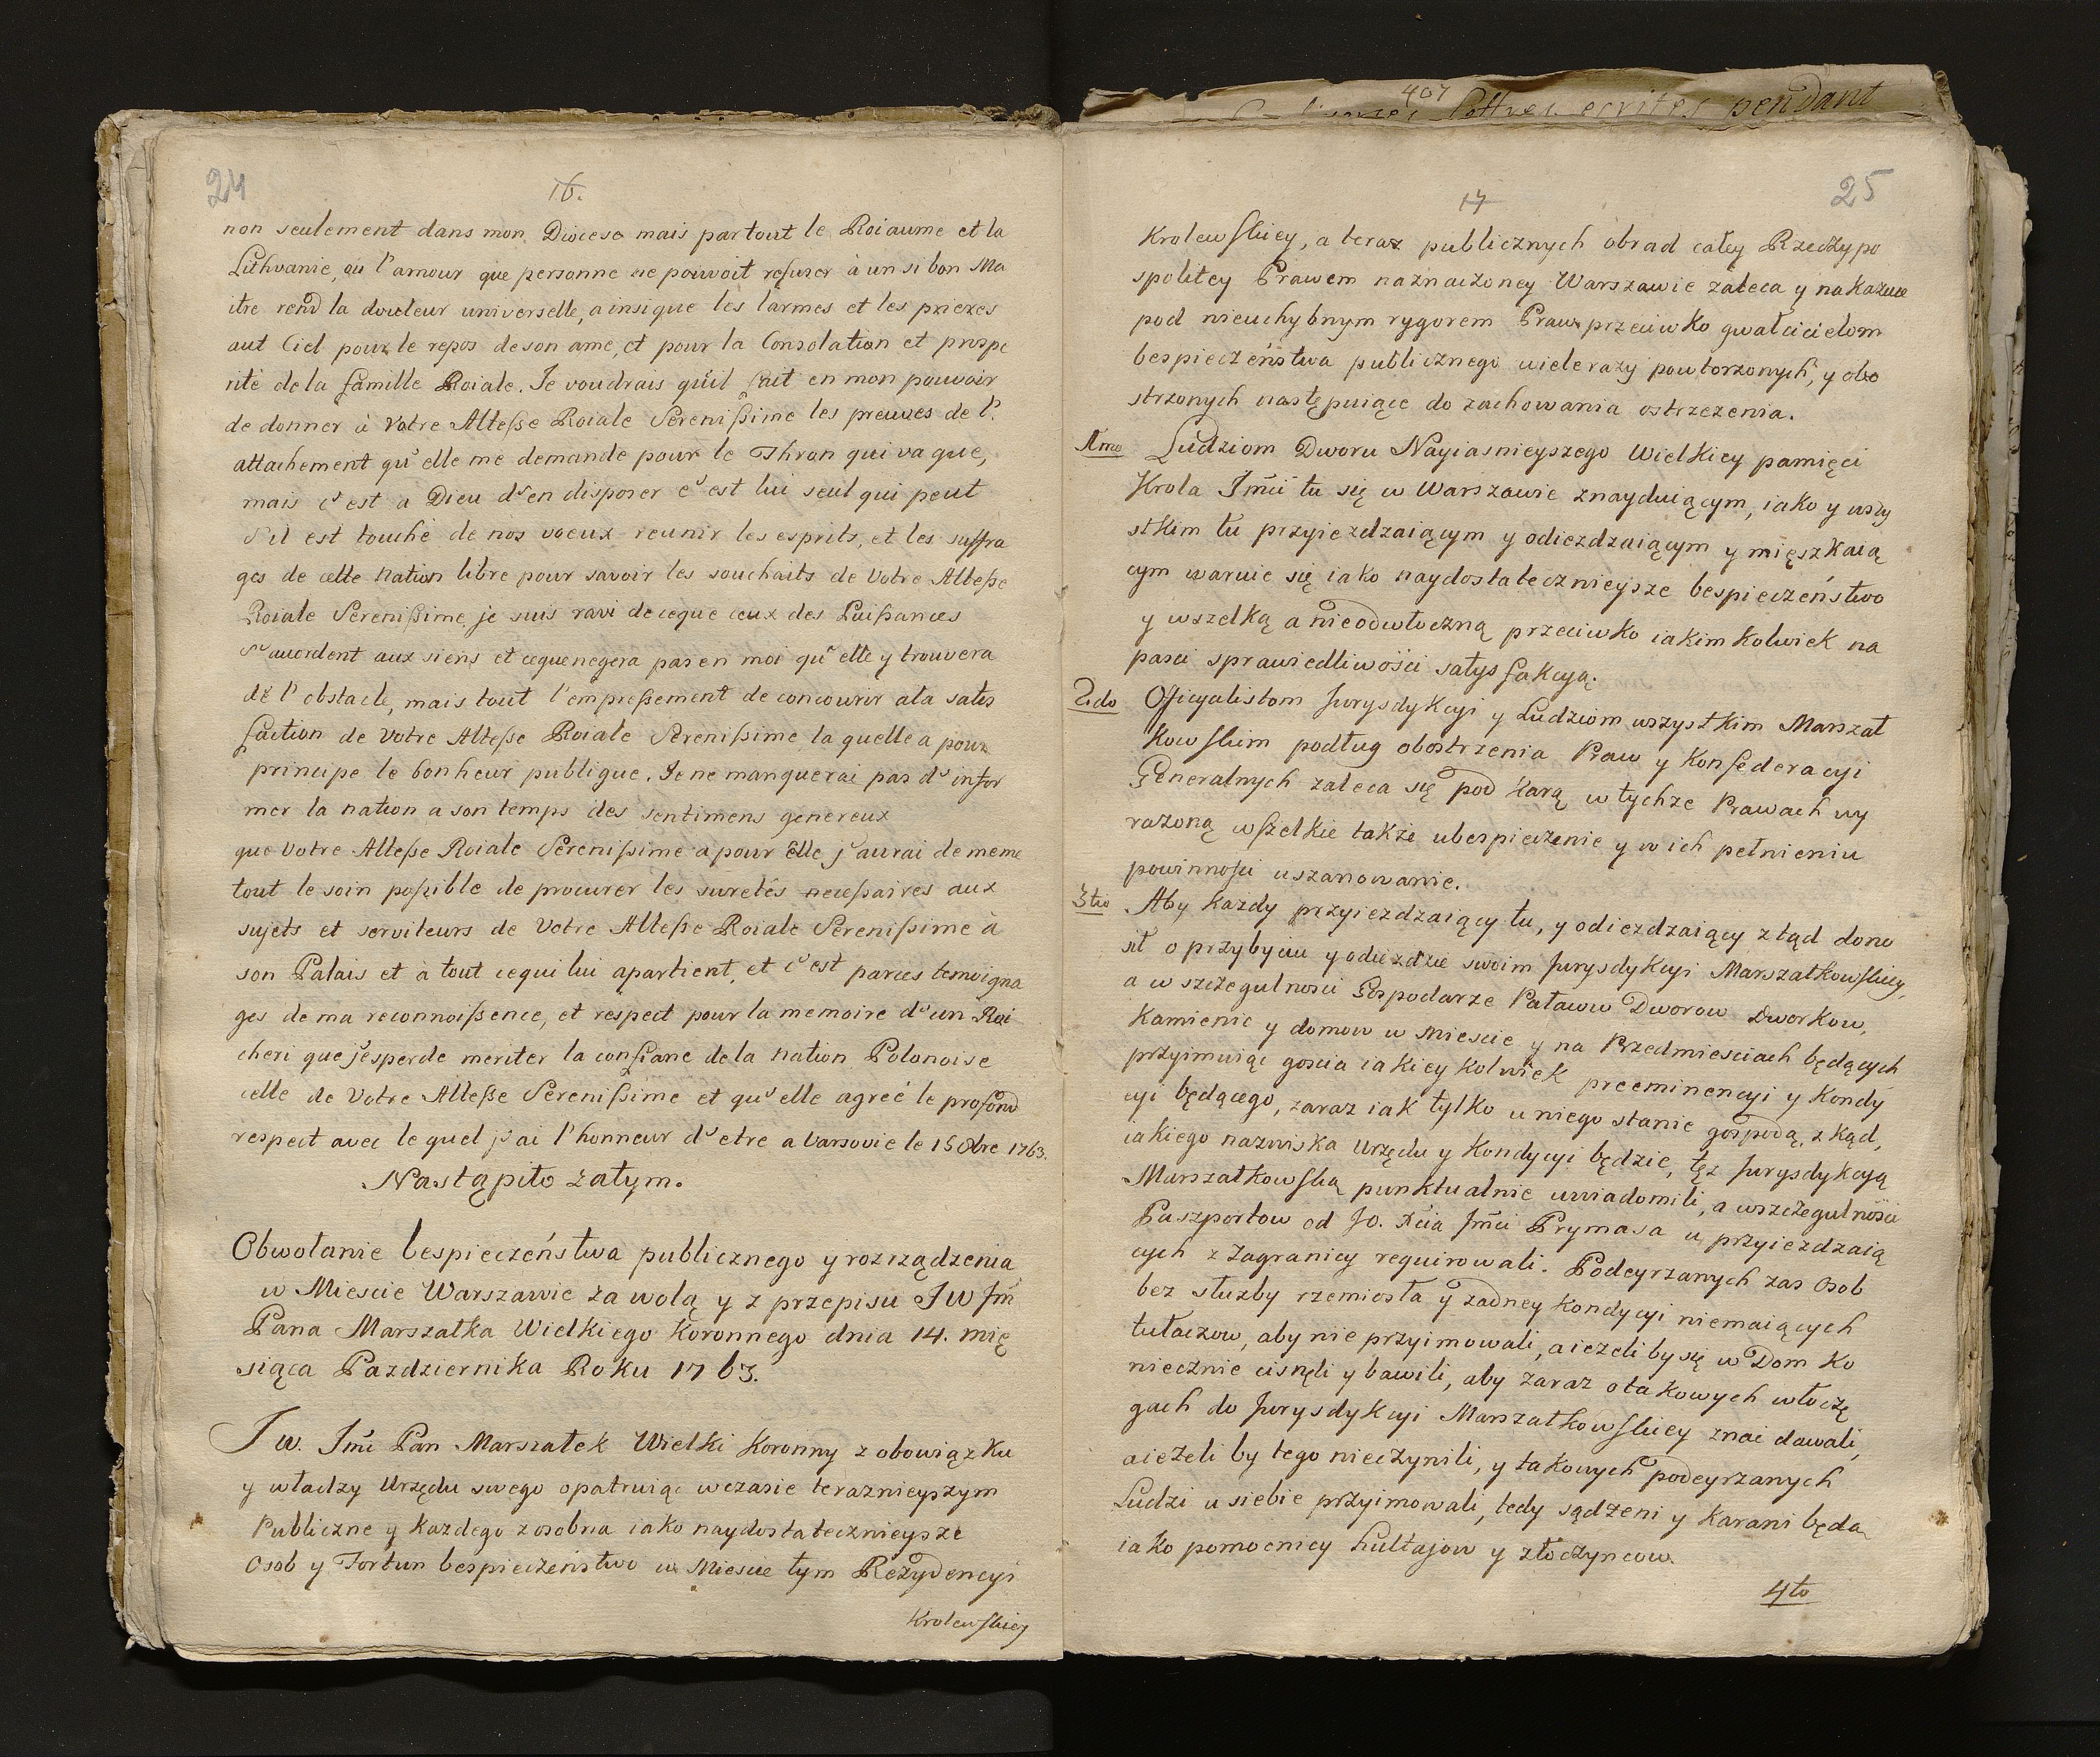 24
16.
non seulement dans mon Diocese mais partout le Roiaume et la
Lithvanie, ou l'amour que personne ne pouvoit refuser à un si bon Ma
itre rend la douleur universelle, ainsi que les larmes et les prieres
aut Ciel pour le repos de son ame, et pour la Consolation et prospe
rité de la famille Roiale. Je voudrais qu'il fut en mon pouvoir
de donner à Votre Altesse Roiale Serenissime les preuves de l'
attachement qu'elle me demande pour le Thron qui vaque,
mais c'est a Dieu d'en disposer c'est lui seul qui peut
S'il est touché de nos voeux reunir les esprits, et les suffra
ges de cette Nation libre pour savoir les souchaits de Votre Altesse
Roiale Serenissime je suis ravi de ceque ceux des Puissances
s'accordent aux siens et ceque negera pas en moi qu'elle y trouvera
de l'obstacle, mais tout l'empressement de concourir ala satis
faction de Votre Altesse Roiale Serenissime la quelle a pour
principe le bonheur publique. Je ne manquerai pas d'infor
mer la nation a son temps des sentimens genereux
que Votre Altesse Roiale Serenissime a pour Elle j'aurai de meme
tout le soin possible de procurer les suretés necessaires aux
sujets et serviteurs de Votre Altesse Roiale Serenissime à
son Palais et à tout cequi lui apartient, et c'est parces temoigna
ges de ma reconnoissence, et respect pour la memoire d'un Roi
cheri que j'esperde meriter la confianc de la nation Polonoise
celle de Votre Altesse Serenissime et qu'elle agreé le profond
respect avec le quel j'ai l'honneur d'etre a Varsovie le 15 8bre 1763.
Nastąpiło zatym.
Obwołanie bespieczeństwa publicznego y rozrządzenia
w Miescie Warszawie za wolą y z przepisu JW Jm̃
Pana Marszałka Wielkiego Koronnego dnia 14. mię
siąca Pazdziernika Roku 1763.
JW. Jmć Pan Marszałek Wielki Koronny z obowiązku
y władzy Urzędu swego opatruiąc wczasie teraznieyszym
Publiczne y każdego zosobna iako naydostatecznieysze
Osob y Fortun bespieczeństwo w Miescie tym Rezydencyi
Krolewskiey
407
Lettres ecrites pendant
25
17
Krolewskiey, a teraz publicznych obrad całey Rzeczypo
spolitey Prawem naznaczoney Warszawie zaleca y nakazuie
pod nieuchybnym rygorem Praw przeciwko gwałcicielom
bespieczeństwa publicznego wielerazy powtorzonych, y obo
strzonych następuiące do zachowania ostrzezenia.
1mo Ludziom Dworu Nayiasnieyszego Wielkiey pamięci
Krola Jmci tu się w Warszawie znayduiącym, iako y wszy
stkim tu przyiezdzaiącym y odiezdzaiącym y mięszkaią
cym waruie się iako naydostatecznieysze bespieczeństwo
y wszelką a nieodwłoczną przeciwko iakimkolwiek na
pasci sprawiedliwości satysfakcyą.
2do Officyalistom Jurysdykcyi y Ludziom wszystkim Marszał
kowskim podług obostrzenia Praw y Konfederacyi
Generalnych zaleca się pod Karą w tychze Prawach wy
rażoną wszelkie także ubespieczenie y w ich pełnieniu
powinności uszanowanie.
3tio Aby każdy przyiezdzaiący tu, y odiezdzaiący ztąd dono
sił o przybyciu y odiezdzie swoim Jurysdykcyi Marszałkowskiey,
a w szczegulnosci Gospodarze Pałacow Dworow Dworkow,
Kamienic y domow w Miescie y na Przedmiesciach będących
przyimuiąc goscia iakiey kolwiek preeminencyi y Kondy
cyi będącego, zaraz iak tylko u niego stanie gospodą, z kąd,
iakiego nazwiska Urzędu y Kondycyi będzie, tęz Jurysdykcyą
Marszałkowską punktualnie uwiadomili, a wszczegulności
Paszportow od JO. Xcia Jmci Prymasa u przyiezdzaią
cych z Zagranicy requirowali. Podeyrzanych zas Osob
bez służby rzemiosła y żadney Kondycyi niemaiących
tułaczow, aby nie przyimowali, a ieżeliby się w Dom Ko
niecznie cisnęli y bawili, aby zaraz otakowych włoczę
gach do Jurysdykcyi Marszałkowskiey znac dawali,
aieżeli by tego nieczynili, y takowych podeyrzanych
Ludzi u siebie przyimowali, tedy sądzeni y Karani będą
iako pomocnicy hultajow y złoczyncow.
4to